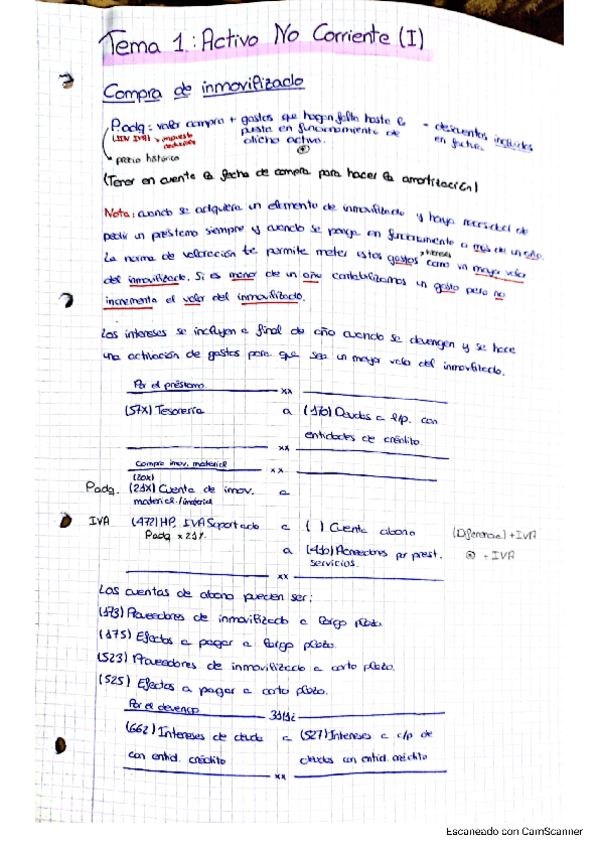 Tema 1: Activo No Corriente (I)
Compra de inmovilizado
Padq: valor compra + gastos que hagan falta hasta la - descuentos incluidos
(SIN IVA) puesta en funcionamiento de en factura.
dicho activo.
precio histórico
(Tener en cuenta la fecha de compra para hacer la amortización)
Nota: cuando se adquiera un elemento de inmovilizado y haya necesidad de
pedir un préstamo siempre y cuando se ponga en funcionamiento a más de un año.
La norma de valoración te permite meter estos gastos como un mayor valor
del inmovilizado. Si es menor de un año contabilizamos un gasto pero no
incrementa el valor del inmovilizado.
Los intereses se incluyen a final de año cuando se devengen y se hace
una activación de gastos para que sea un mayor valor del inmovilizado.
Por el préstamo
xx
(57X) Tesorería a (170) Deudas a l/p. con
entidades de crédito.
xx
Compra inov. material
xx
(20x)
Padq. (21X) Cuenta de inmov. a
material./inmaterial
IVA (472) HP, IVA Soportado a ( ) Cuenta abono (Diferencia) + IVA
Padq x 21%
a (410) Acreedores por prest. + IVA
servicios.
xx
Las cuentas de abono pueden ser:
(173) Proveedores de inmovilizado a largo plazo
(175) Efectos a pagar a largo plazo.
(523) Proveedores de inmovilizado a corto plazo.
(525) Efectos a pagar a corto plazo.
Por el devengo
31/12
(662) Intereses de deuda a (527) Intereses a c/p de
con entid. crédito deudas con entid. crédito
xx
Escaneado con CamScanner